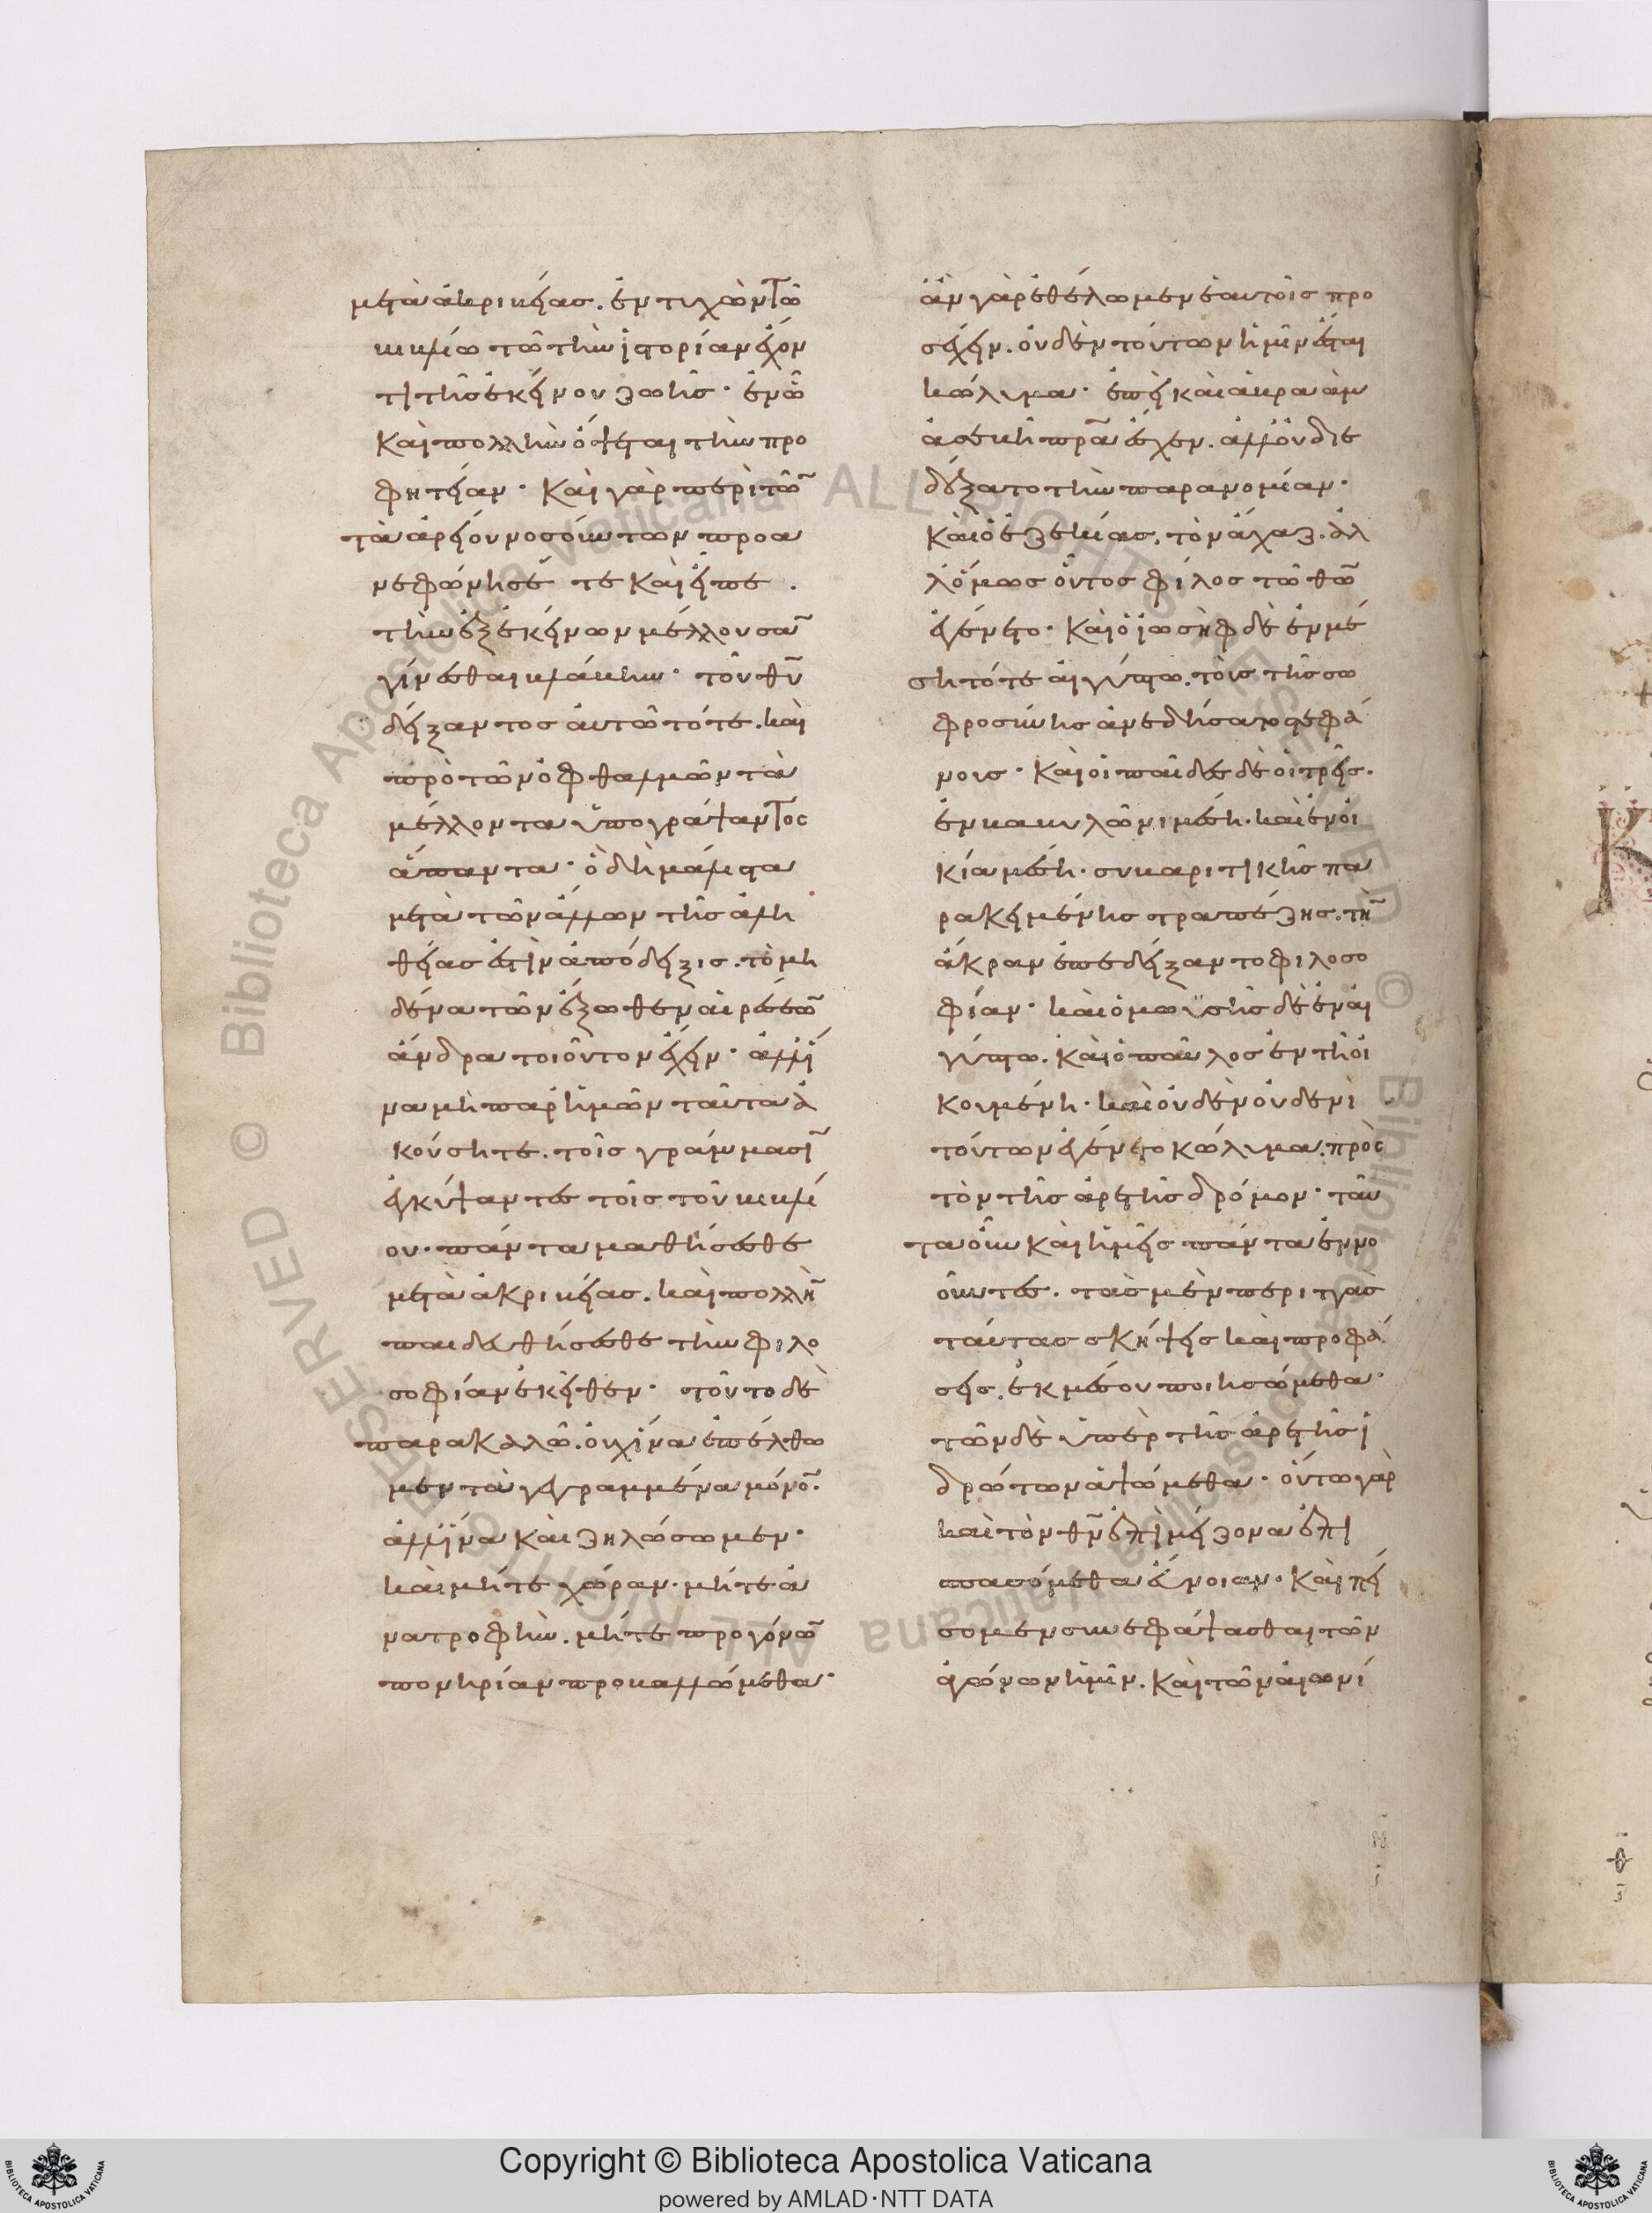 μετὰ ἀκριβείας. ἐντυχὼν τῶ
βιβλίω τῶ τὴν ἱστορίαν ἔχον
τι τῆς ἐκείνου ζωῆς· ἐν ὧ
καὶ πολλὴν ὄψεται τὴν προ
φητείαν· καὶ γὰρ περὶ τῶν
τὰ ἀρείου νοσούντων προα
νεφώνησέ τε καὶ εἶπε.
τὴν ἐξ ἐκείνων μέλλουσαν
γίνεσθαι βλάβην· τοῦ θῦ
δείξαντος αὐτῶ τότε. καὶ
πρὸ τῶν ὀφθαλμῶν τὰ
μέλλοντα ὑπογράψαντος
ἅπαντα· ὃ δὴ μάλιστα
μετὰ τῶν ἄλλων τῆς ἀλη
θείας ἐστὶν ἀπόδειξις. τὸ μη
δένα τῶν ἔξωθεν αἱρέσεων
ἄνδρα τοιοῦτον ἔχειν· ἀλλ' ἵ
να μὴ παρ' ἡμῶν ταῦτα ἀ
κούσητε. τοῖς γράμμασιν
ἐγκύψαντες τοῖς τοῦ βιβλί
ου· πάντα μαθήσεσθε
μετὰ ἀκριβείας. καὶ πολλὴν
παιδευθήσεσθε τὴν φιλο
σοφίαν ἐκεῖθεν· τοῦτο δὲ
παρακαλῶ. οὐχ ἵνα ἐπέλθω
μεν τὰ γεγραμμένα μόνον.
ἀλλ' ἵνα καὶ ζηλώσωμεν·
καὶ μήτε χώραν. μήτε ἀ
νατροφὴν. μήτε προγόνων
πονηρίαν προβαλλώμεθα·
ἂν γὰρ ἐθέλωμεν ἑαυτοῖς προ
σέχειν. οὐδὲν τούτων ἡμῖν ἔσται
κώλυμα· ἐπεὶ καὶ ἀβραὰμ
ἀσεβῆ πρα ἔσχεν. ἀλλ' οὐ διε
δέξατο τὴν παρανομίαν·
καὶ ὁ ἐζεκίας, τὸν ἄχαζ. ἀλ
λ' ὅμως οὗτος φίλος τῶ θῶ
ἐγένετο· καὶ ὁ ἰωσὴφ δὲ ἐν μέ
ση τότε αἰγύπτω. τοὺς τῆς σω
φροσύνης ἀνεδήσατο στεφά
νους· καὶ οἱ παῖδες δὲ οἱ τρεῖς.
ἐν βαβυλῶνι μέση. καὶ ἐν οἰ
κία μέση. συβαριτικῆς πα
ρακειμένης τραπέζης. τὴν
ἄκραν ἐπεδείξαντο φιλοσο
φίαν· καὶ ὁ μωϋσῆς δὲ ἐν αἰ
γύπτω. καὶ ὁ παῦλος ἐν τῆ οἰ
κουμένη. καὶ οὐδὲν οὐδενὶ
τούτων ἐγένετο κώλυμα. πρὸς
τὸν τῆς ἀρετῆς δρόμον· ταῦ
τα οὖν καὶ ἡμεῖς πάντα ἐννο
οῦντες. τὰς μὲν περιττὰς
ταύτας σκήψεις καὶ προφά
σεις. ἐκ μέσου ποιησώμεθα·
τῶν δὲ ὑπὲρ τῆς ἀρετῆς ἱ
δρώτων ἁψώμεθα· οὕτω γὰρ
καὶ τὸν θν ἐπὶ μείζονα ἐπι
σπασόμεθα εὔνοιαν. καὶ πεί
σομεν συνεφάψασθαι τῶν
ἀγώνων ἡμῖν. καὶ τῶν αἰωνί
Copyright © Biblioteca Apostolica Vaticana
powered by AMLAD·NTT DATA